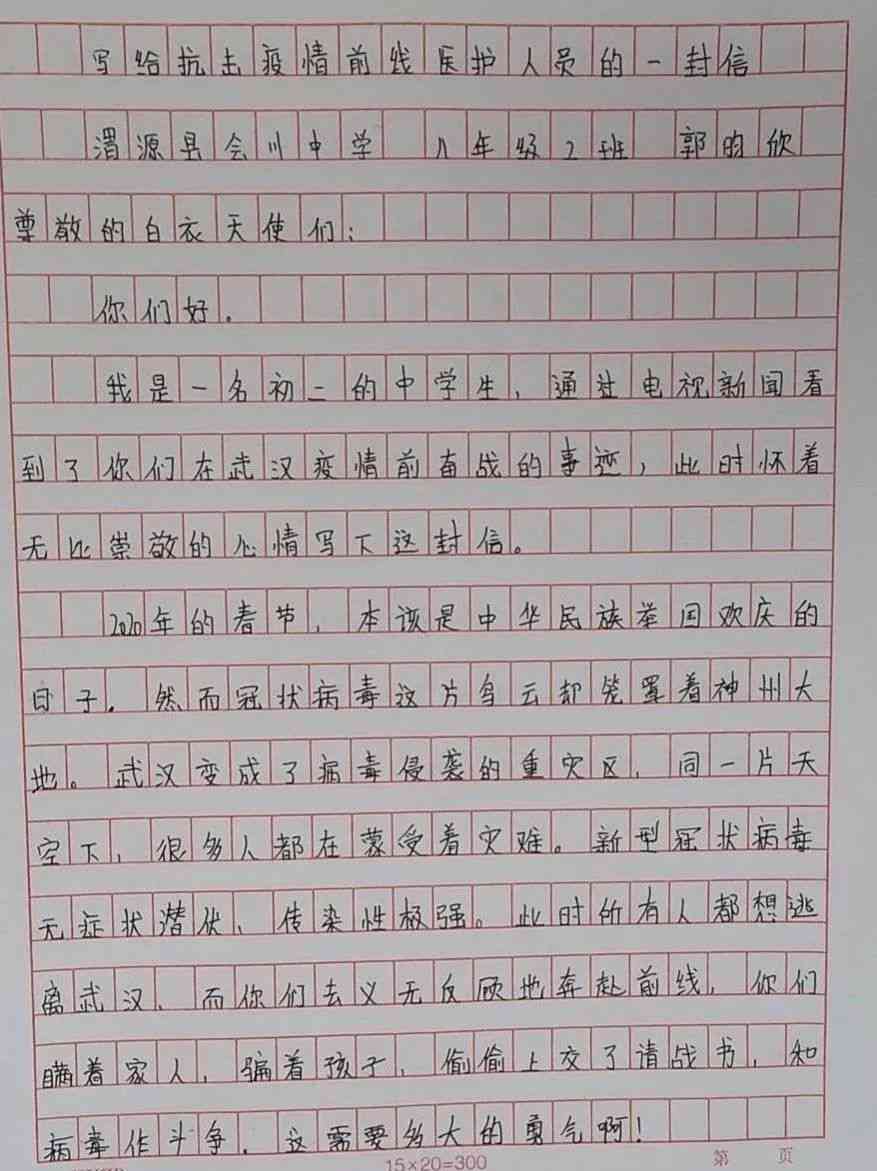 写给抗击疫情前线医护人员的一封信
渭源县会川中学 八年级2班 郭昀欣
尊敬的白衣天使们：
你们好．
我是一名初二的中学生，通过电视新闻看
到了你们在武汉疫情前奋战的事迹，此时怀着
无比崇敬的心情写下这封信。
2020年的春节，本该是中华民族举国欢庆的
日子．然而冠状病毒这片乌云却笼罩着神州大
地。武汉变成了病毒侵袭的重灾区，同一片天
空下，很多人都在蒙受着灾难。新型冠状病毒
无症状潜伏、传染性极强。此时所有人都想逃
离武汉、而你们去义无反顾地奔赴前线，你们
瞒着家人，骗着孩子，偷偷上交了请战书，和
病毒作斗争．这需要多大的勇气啊！
15×20=300
第 页